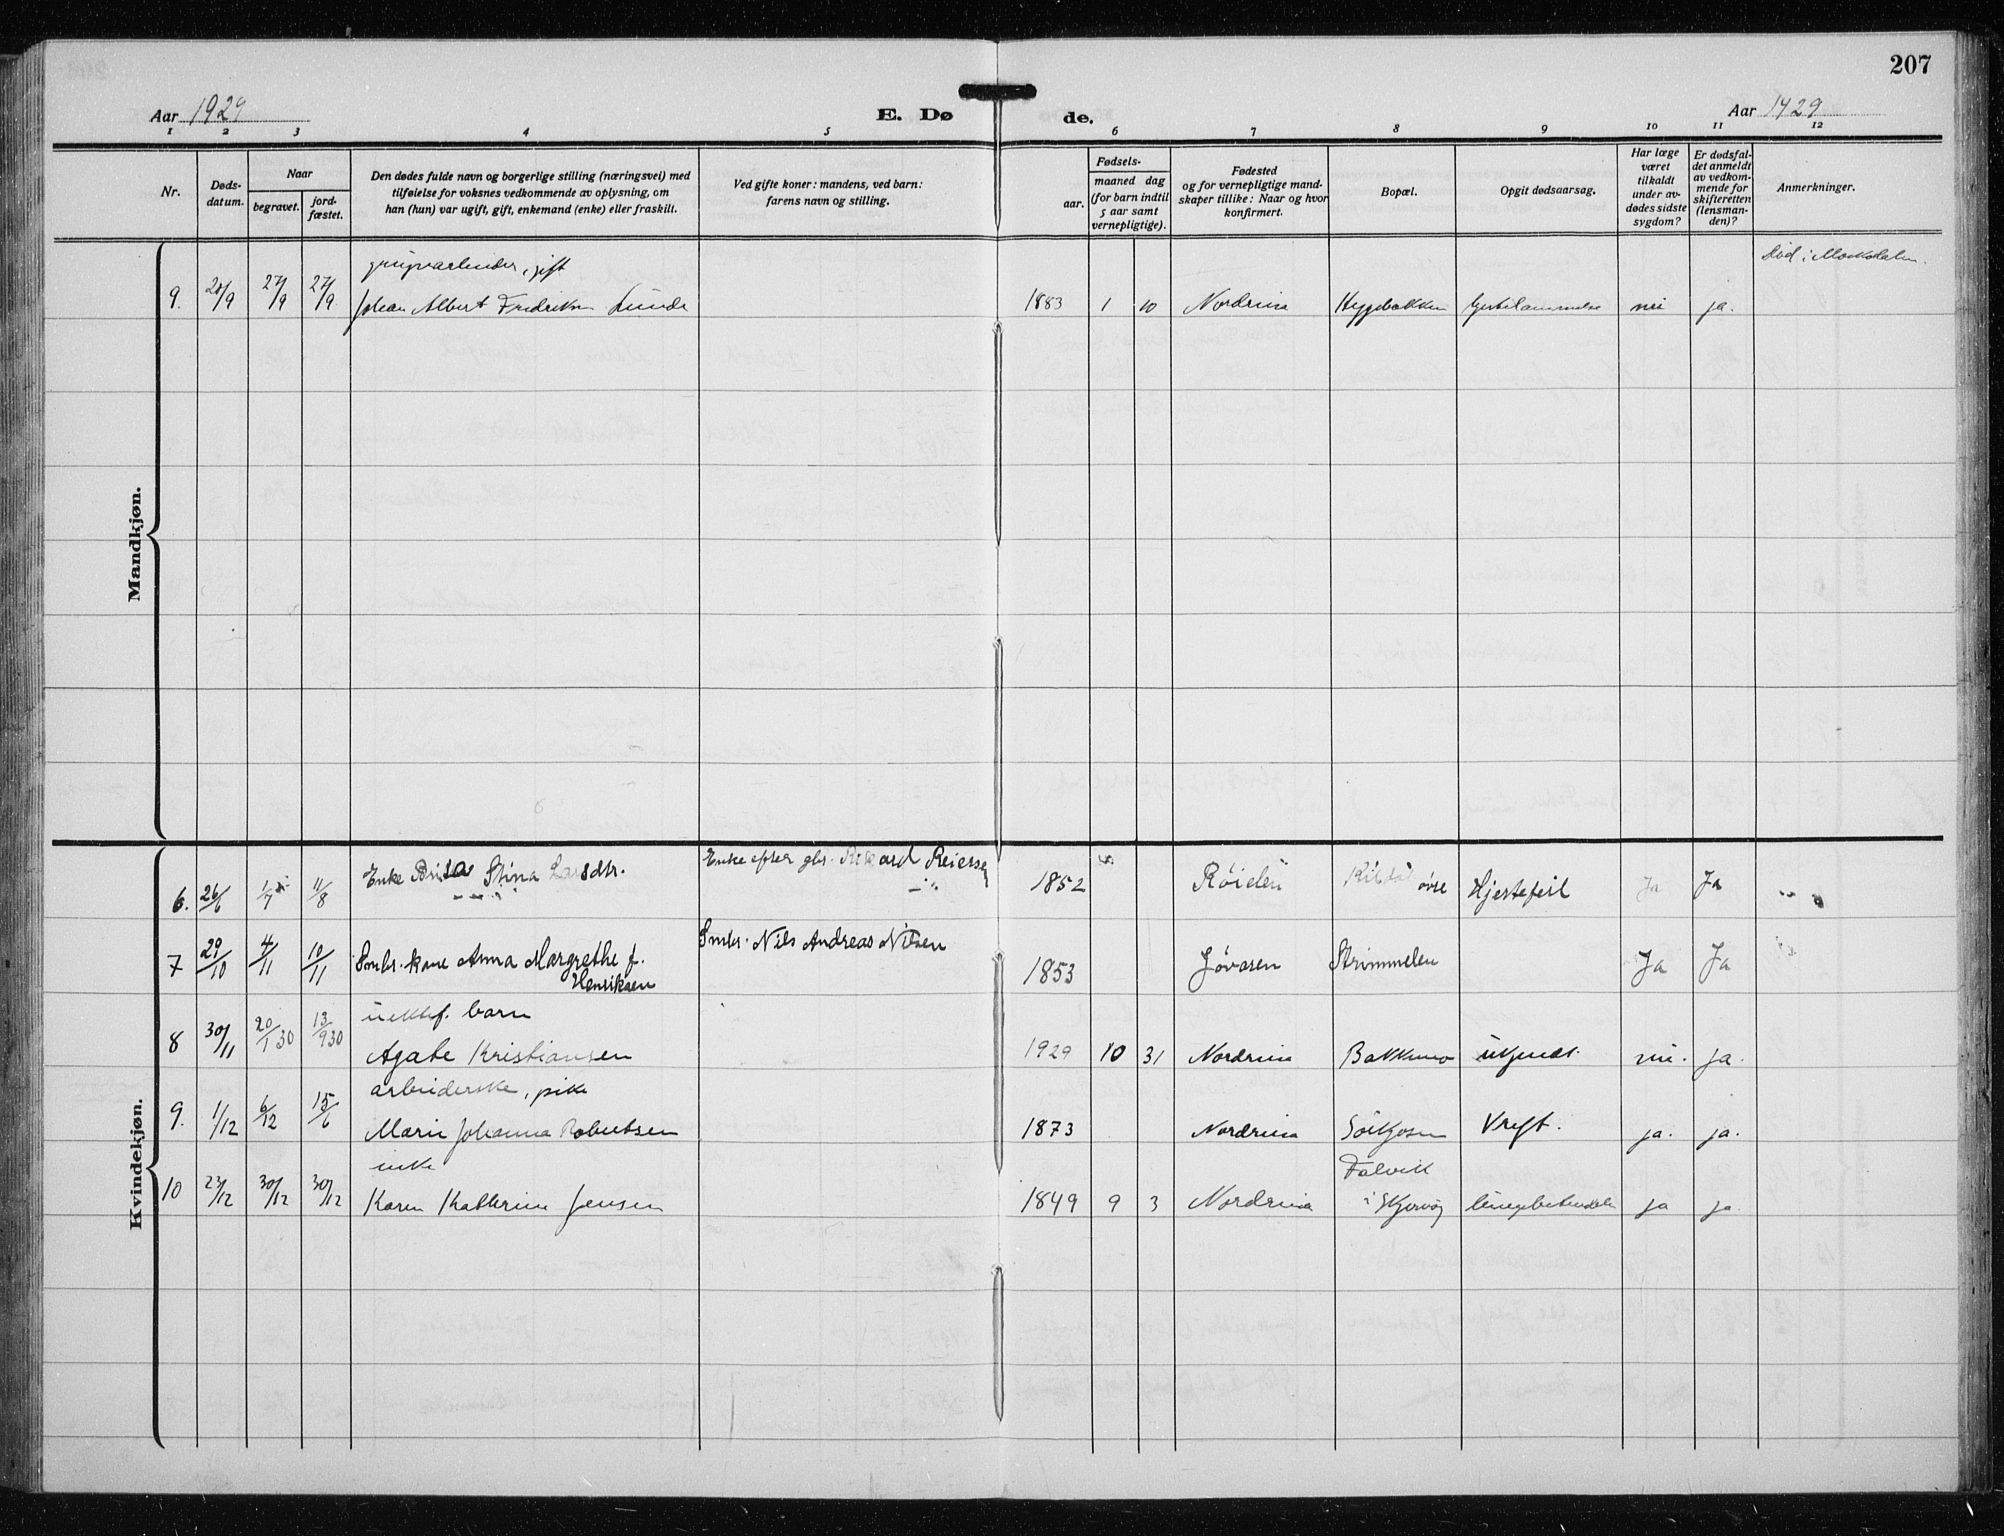 207
Aar 1929
E. Dø
de.
Aar 1929
1 2 3 4 5 6 7 8 9 10 11 12
Nr.
Døds-
datum.
Naar
begravet.
jord-
fæstet.
Den dødes fulde navn og borgerlige stilling (næringsvei) med
tilføielse for voksnes vedkommende av oplysning, om
han (hun) var ugift, gift, enkemand (enke) eller fraskilt.
Ved gifte koner: mandens, ved barn:
farens navn og stilling.
Fødsels-
aar.
maaned dag
(for barn indtil
5 aar samt
vernepligtige).
Fødested
og for vernepligtige mand-
skaper tillike: Naar og hvor
konfirmert.
Bopæl.
Opgit dødsaarsag.
Har læge
været
tilkaldt
under av-
dødes sidste
sygdom?
Er dødsfal-
det anmeldt
av vedkom-
mende for
skifteretten
(lensman-
den)?
Anmerkninger.
Mandkjøn.
gruvearbeider, gift
Død i
9. 20/9 27/9 27/9 Johan Albert Fredriksen Lunde 1883 1 10 Nordreisa Hyggebakken hjertelammelse nei ja.
Kvindekjøn.
Enke Stina Larsdtr. Enke efter gbr. Rikard Reiersen
6. 26/6 1/7 11/8 1852 Røielen øvre Hjertefeil Ja Ja
Smbr. Nils Andreas Nilsen
7 29/10 4/11 10/11 Smbr. kone Anna Margrethe f. 1853 Jøvasen Strimmelen Ja Ja
Henriksen
uektef. barn
8 30/11 20/1 30 13/9 30 Agate Kristiansen 1929 10 31 Nordreisa Bakkemo ukjendt. nei. ja.
arbeiderske, pike
9. 1/12 6/12 15/6 Marie Johanna Robertsen 1873 Nordreisa Sørkjosen Kreft. ja. ja.
enke
10 23/12 30/12 30/12 Karen Kathrine Jensen 1849 9 3 Nordreisa i Skjervøy lungebetendelse ja ja